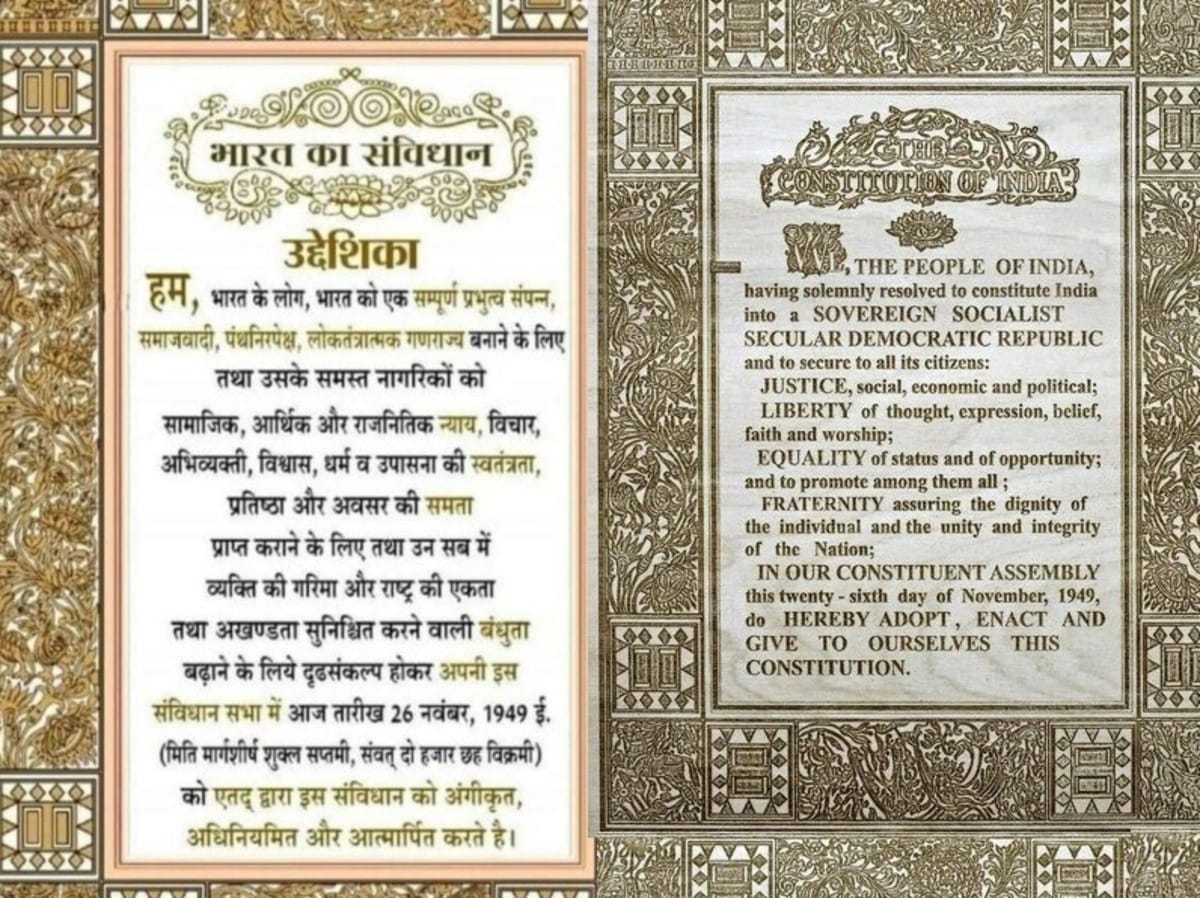 भारत का संविधान
उद्देशिका
हम, भारत के लोग, भारत को एक सम्पूर्ण प्रभुत्व संपन्न,
समाजवादी, पंथनिरपेक्ष, लोकतंत्रात्मक गणराज्य बनाने के लिए
तथा उसके समस्त नागरिकों को
सामाजिक, आर्थिक और राजनितिक न्याय, विचार,
अभिव्यक्ती, विश्वास, धर्म व उपासना की स्वतंत्रता,
प्रतिष्ठा और अवसर की समता
प्राप्त कराने के लिए तथा उन सब में
व्यक्ति की गरिमा और राष्ट्र की एकता
तथा अखण्डता सुनिश्चित करने वाली बंधुता
बढ़ाने के लिये दृढसंकल्प होकर अपनी इस
संविधान सभा में आज तारीख 26 नवंबर, 1949 ई.
(मिति मार्गशीर्ष शुक्ल सप्तमी, संवत् दो हजार छह विक्रमी)
को एतद् द्वारा इस संविधान को अंगीकृत,
अधिनियमित और आत्मार्पित करते है।
THE
CONSTITUTION OF INDIA
WE, THE PEOPLE OF INDIA,
having solemnly resolved to constitute India
into a SOVEREIGN SOCIALIST
SECULAR DEMOCRATIC REPUBLIC
and to secure to all its citizens:
JUSTICE, social, economic and political;
LIBERTY of thought, expression, belief,
faith and worship;
EQUALITY of status and of opportunity;
and to promote among them all ;
FRATERNITY assuring the dignity of
the individual and the unity and integrity
of the Nation;
IN OUR CONSTITUENT ASSEMBLY
this twenty - sixth day of November, 1949,
do HEREBY ADOPT, ENACT AND
GIVE TO OURSELVES THIS
CONSTITUTION.